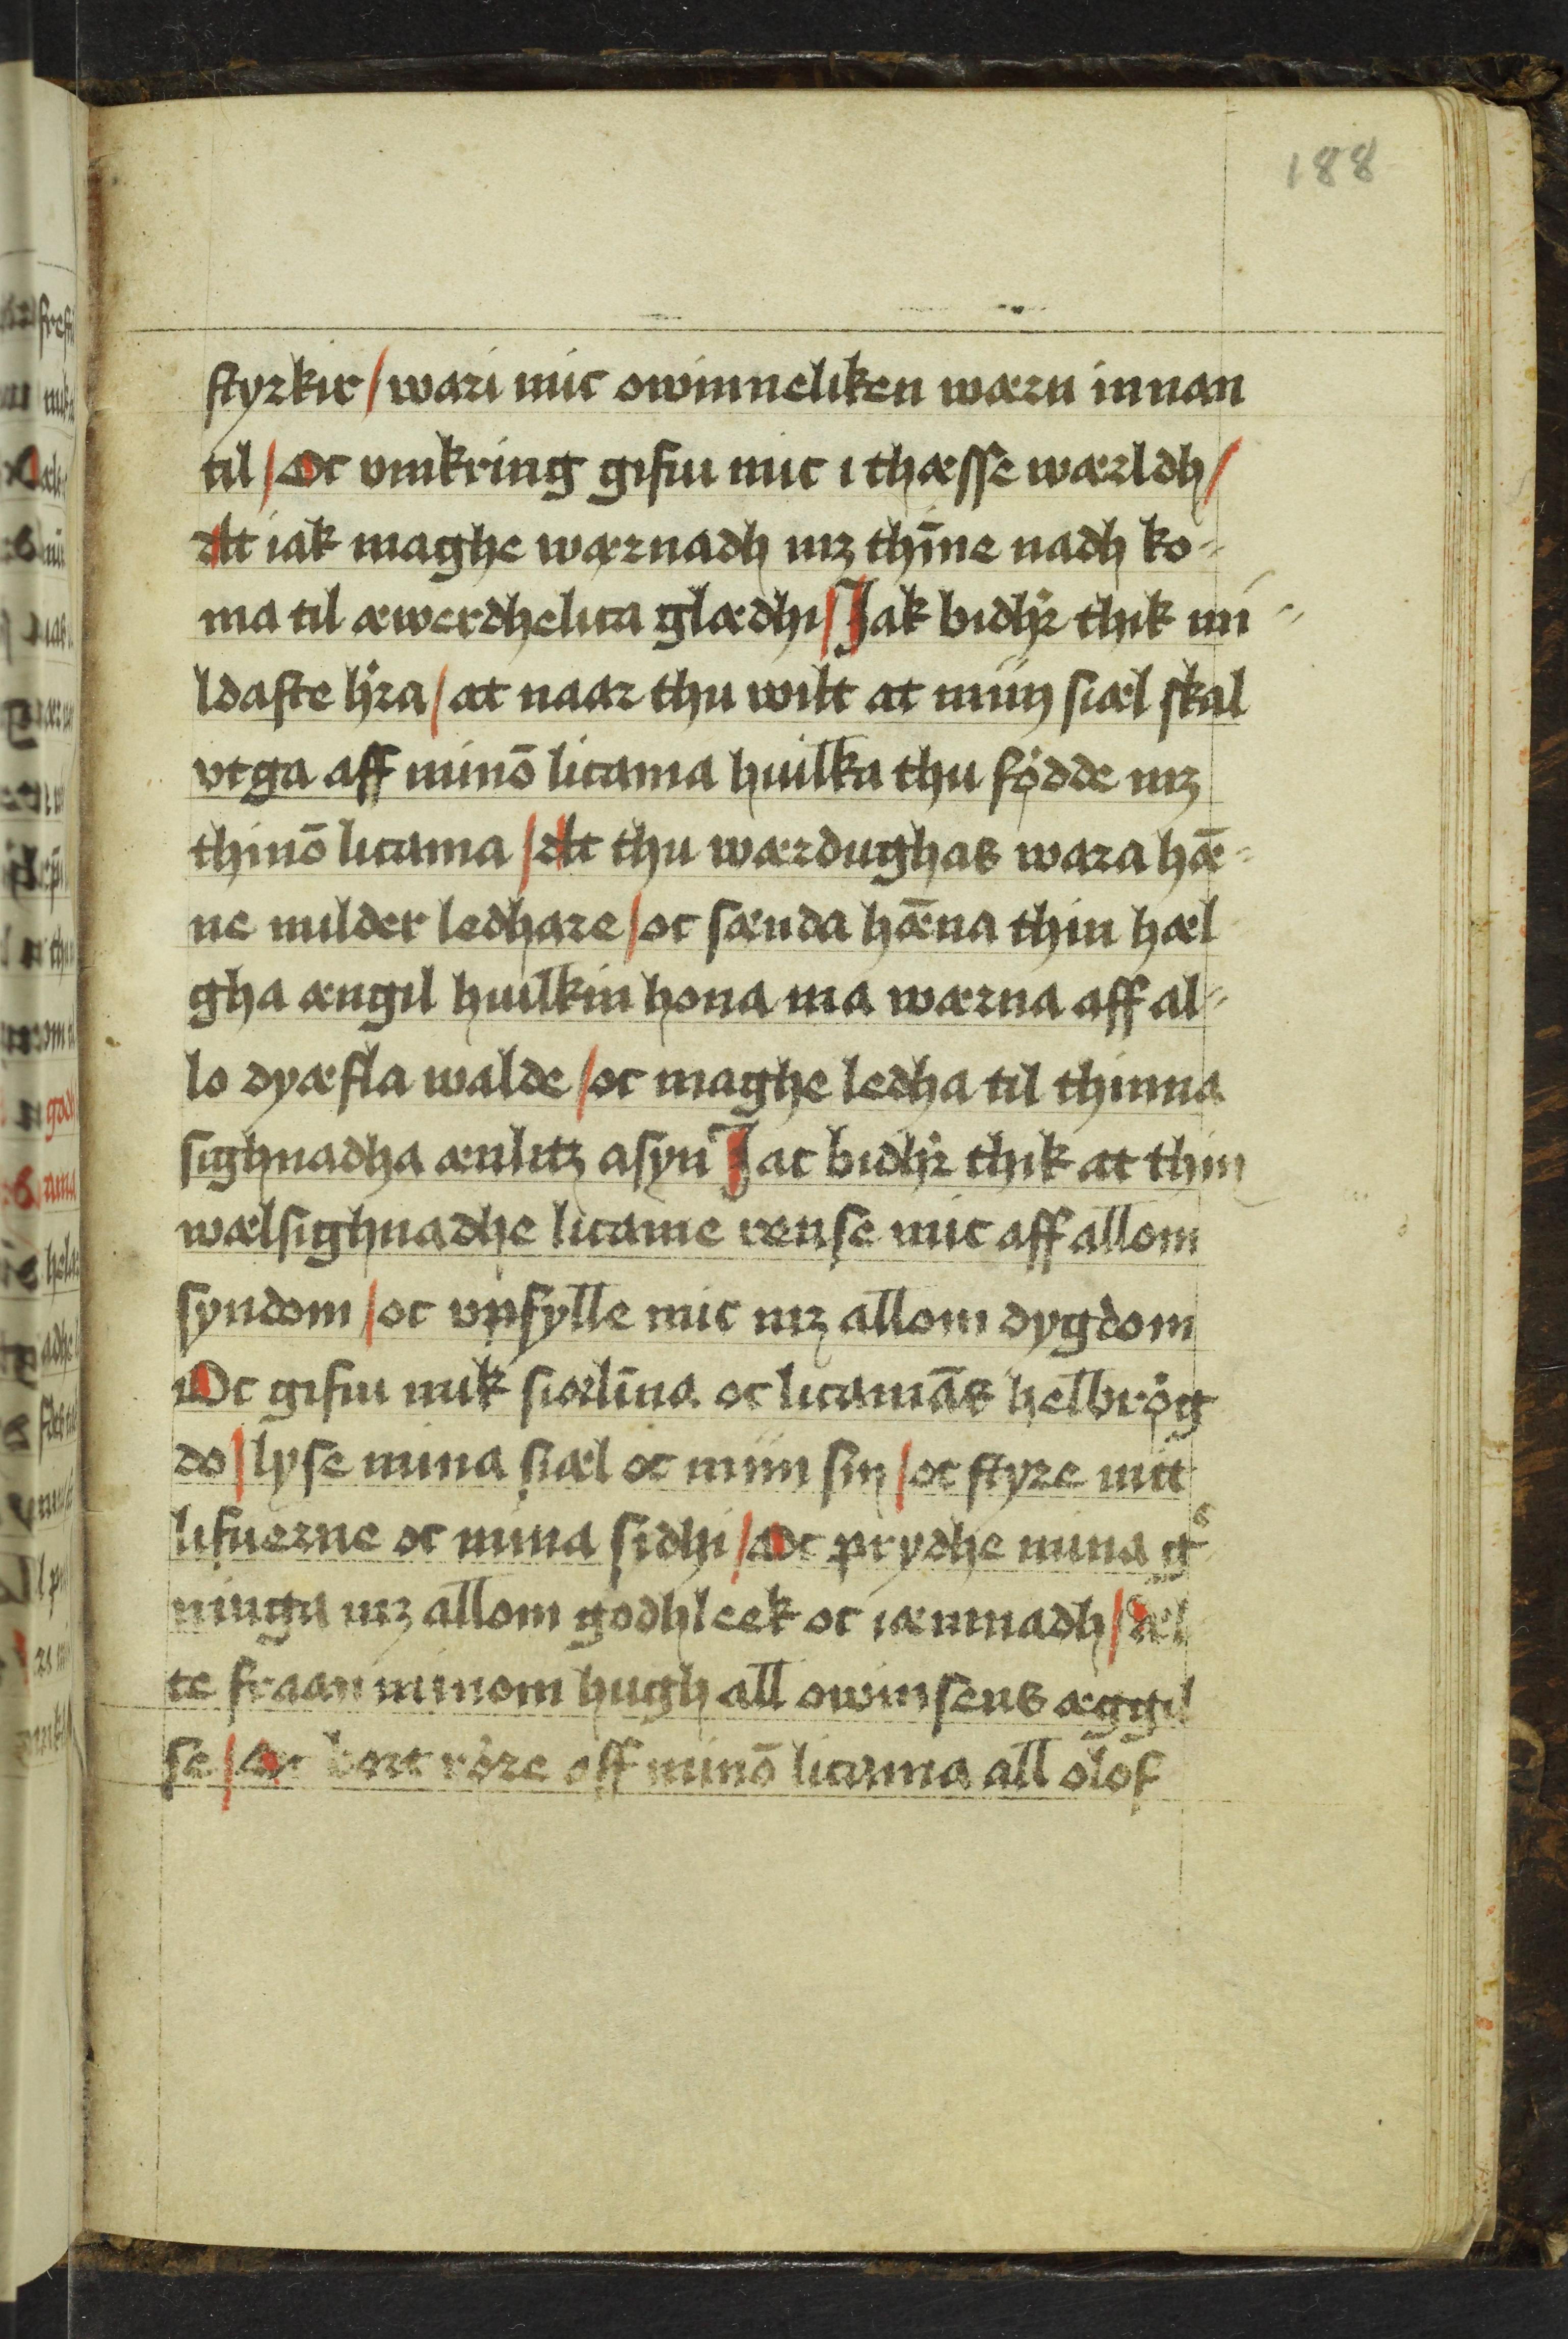 188
styrkir / wari mic owinneliken wærn innan
til / Oc vmkring gifui mic i thæsse wærldh /
At iak maghe wærnadh mꝫ thīne nadh ko-
ma til æwerdhelica glædhi / Jak bidhꝛ thik mi-
ldaste hꝛa / at naar thu wilt at miin siæl skal
vtga aff minō licama huilka thu födde mꝫ
thinō licama / At thu wærdughas wara hǣ-
ne milder ledhare / oc sænda hǣna thin hæl
gha ængil huilkin hona ma wærna aff al-
lo dyæfla walde / oc maghe ledha til thinna
sighnadha ænlitꝫ asyn Jac bidhꝛ thik at thin
wælsighnadhe licame rense mic aff allom
syndom / oc vpfylle mic mꝫ allom dygdom
Oc gifui mik siælīna oc licamās helbrög
do / lyse mina siæl oc miin sin / oc styre mit
lifuerne oc mina sidhi / Oc prydhe mina gᵉ
ninga mꝫ allom godhleek oc iæmnadh / Æl
te fraan minom hugh all owinsens æggil
se / Oc bort röre aff minō licama all olof